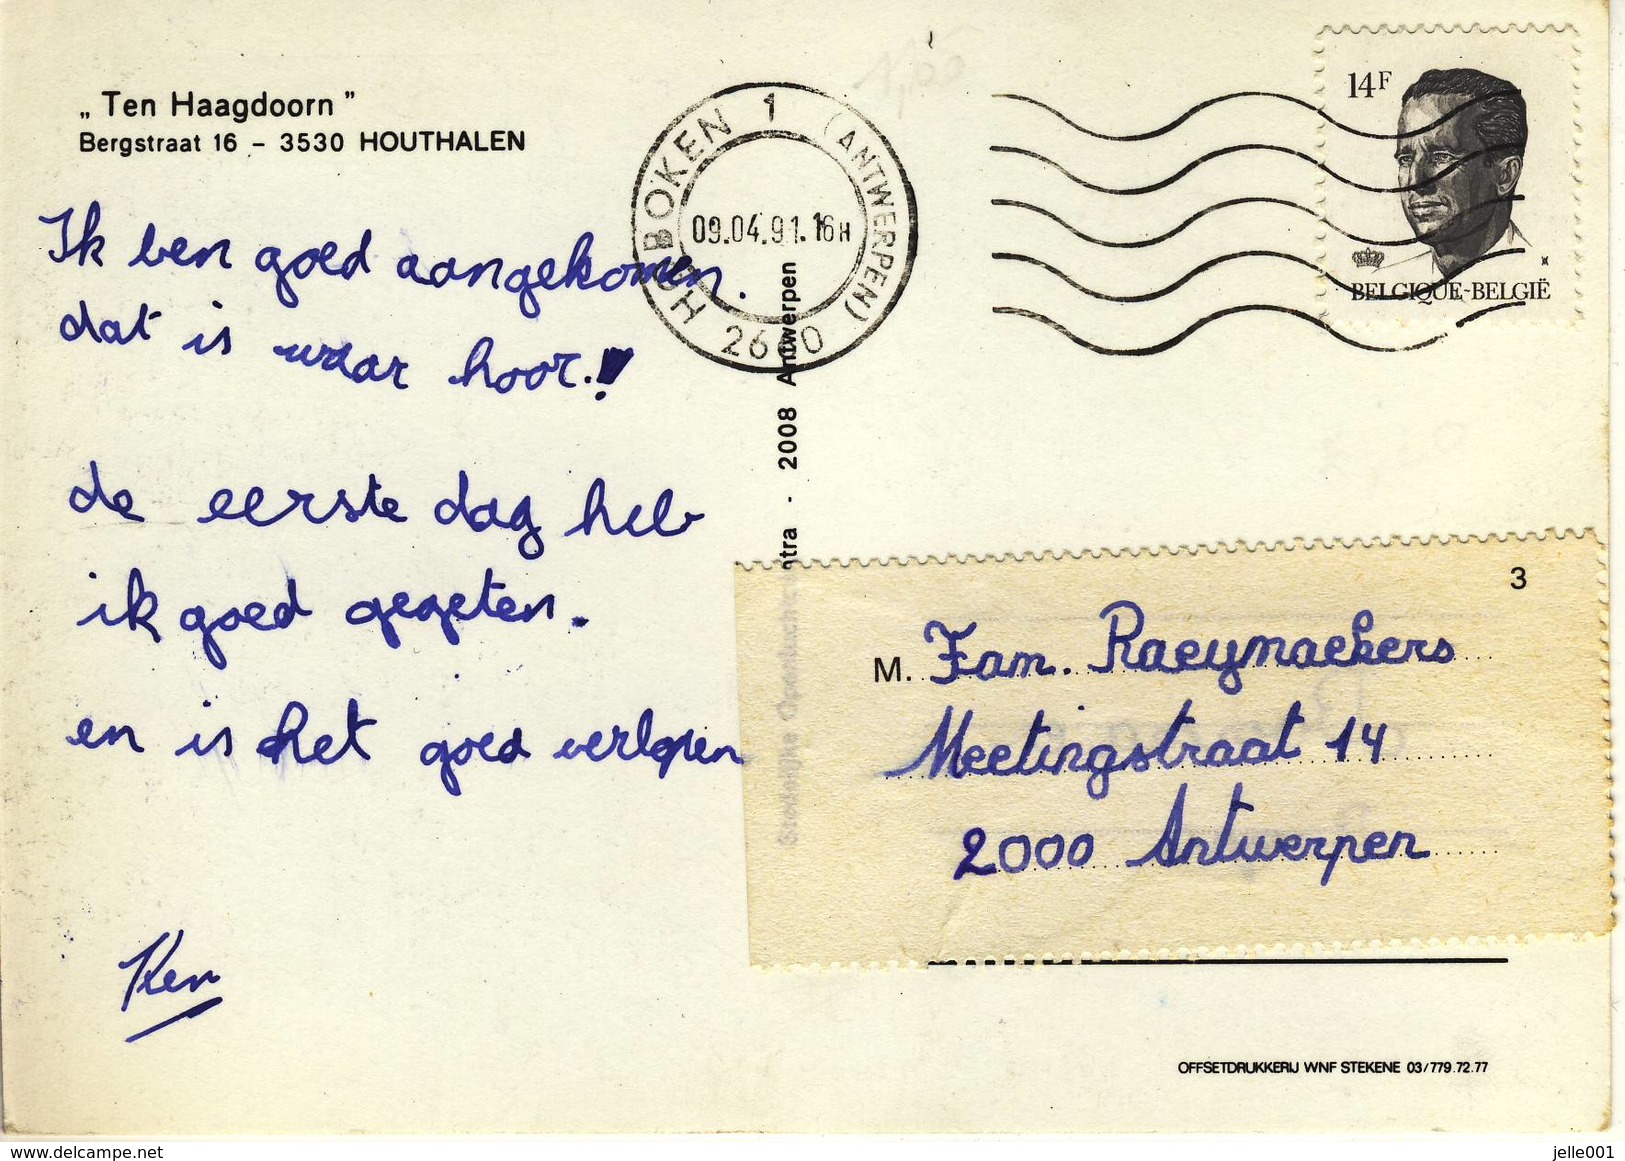 „ Ten Haagdoorn ”
Bergstraat 16 – 3530 HOUTHALEN
Ik ben goed aangekomen.
dat is waar hoor.!
de eerste dag heb
ik goed gegeten.
en is het goed verlopen
Ken
HOBOKEN 1 (ANTWERPEN)
2660
09.04.91.16H
14F
BELGIQUE-BELGIË
Stedelijke Openluchtcentra - 2008 Antwerpen
3
M. Fam. Raeymaekers
Meetingstraat 14
2000 Antwerpen
OFFSETDRUKKERIJ WNF STEKENE 03/779.72.77
www.delcampe.net
jelle001